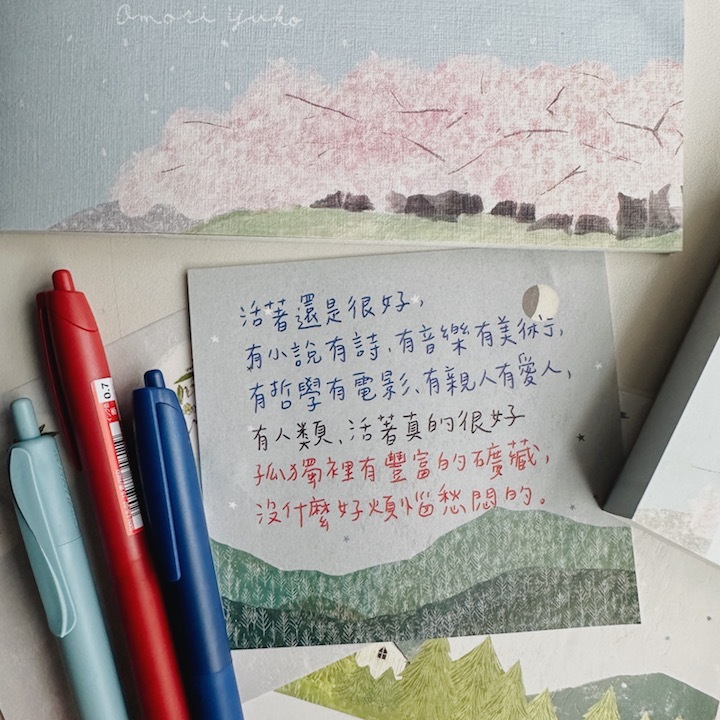 Omori Yuko
活著還是很好,
有小說有詩、有音樂有美術,
有哲學有電影、有親人有愛人,
有人類、活著真的很好
孤獨裡有豐富的礦藏,
沒什麼好煩惱愁悶的。
0.7